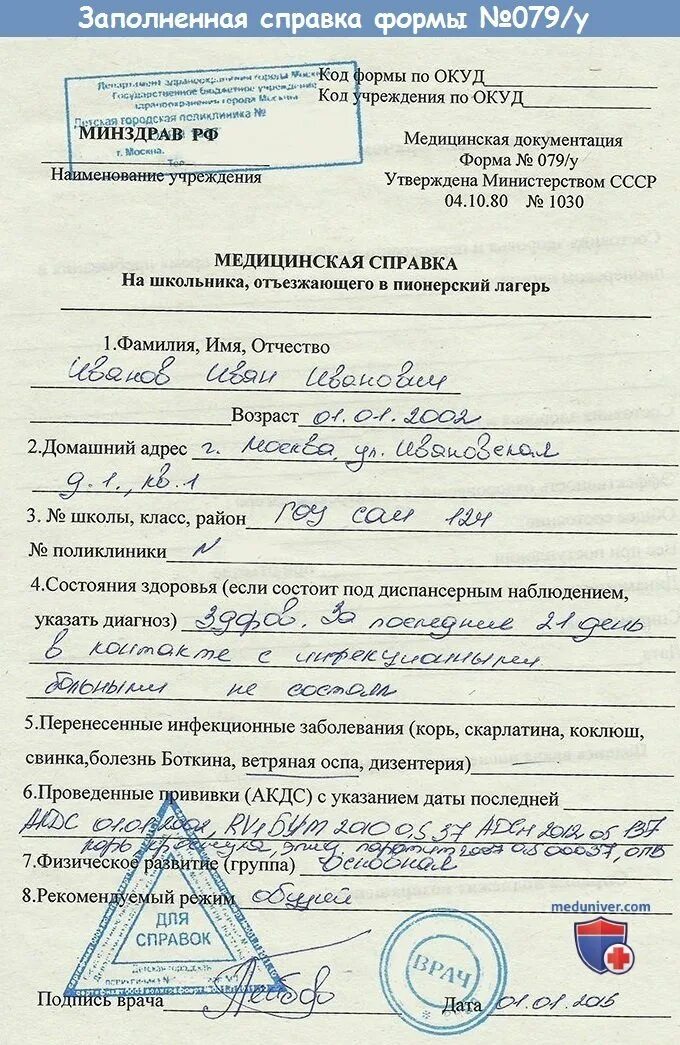 Заполненная справка формы №079/у
Департамент здравоохранения города Москвы
Государственное бюджетное учреждение
здравоохранения города Москвы
Детская городская поликлиника №
г. Москва,
Тел
Код формы по ОКУД
Код учреждения по ОКУД
МИНЗДРАВ РФ
Наименование учреждения
Медицинская документация
Форма № 079/у
Утверждена Министерством СССР
04.10.80 № 1030
МЕДИЦИНСКАЯ СПРАВКА
На школьника, отъезжающего в пионерский лагерь
1.Фамилия, Имя, Отчество
Иванов Иван Иванович
Возраст 01.01.2002
2.Домашний адрес г. Москва, ул. Ивановская
д.1., кв.1
3. № школы, класс, район ГОУ СОШ 124
№ поликлиники N
4.Состояния здоровья (если состоит под диспансерным наблюдением,
указать диагноз) Здоров. За последние 21 день
в контакте с инфекционными
больными не состоял
5.Перенесенные инфекционные заболевания (корь, скарлатина, коклюш,
свинка,болезнь Боткина, ветряная оспа, дизентерия)
6.Проведенные прививки (АКДС) с указанием даты последней
АКДС 01.01.2002, RV1 2010 05 37 АДСН 2012 05 137
корь, краснуха, эпид. паротит 2007 05 00037, ОПВ
7.Физическое развитие (группа) Основная
8.Рекомендуемый режим общий
meduniver.com
ДЛЯ
СПРАВОК
Детская городская
поликлиника №
ВРАЧ
Подпись врача
Дата 01.01.2015